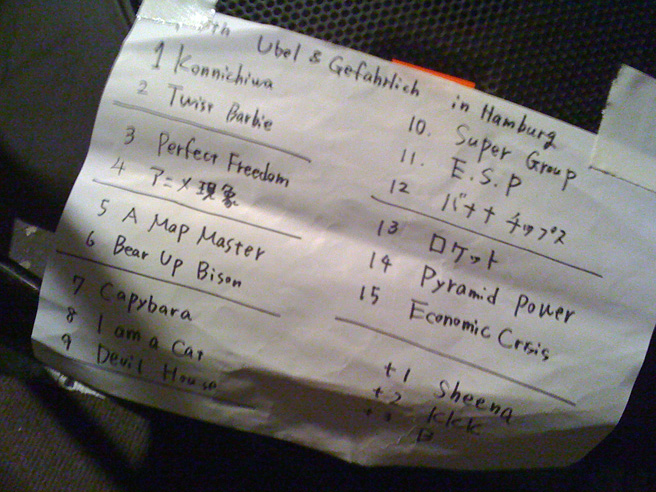 Ubel & Gefahrlich in Hamburg
1 Konnichiwa
2 Twist Barbie
3 Perfect Freedom
4 アニメ現象
5 A Map Master
6 Bear Up Bison
7 Capybara
8 I am a Cat
9 Devil House
10. Super Group
11. E.S.P
12 バナナチップス
13 ロケット
14 Pyramid Power
15 Economic Crisis
+1 Sheena
+2 KKK
+3 B